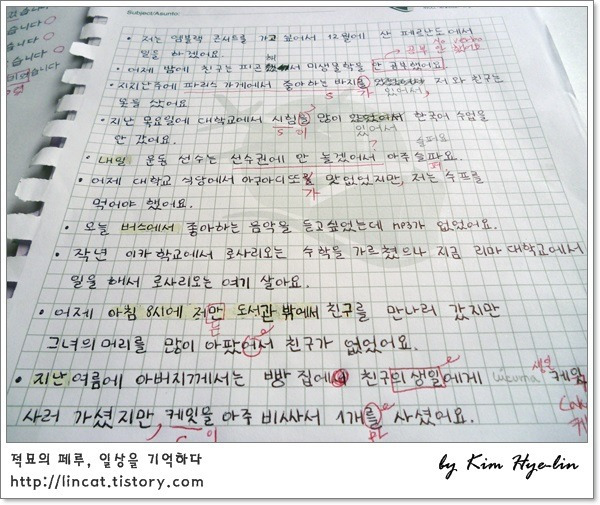 Subject/Asunto:
• 저는 엠블랙 콘서트를 가고 싶어서 12월에 산 페르난도에서
일을 하겠어요.
공부 안 했어요
• 어제 밤에 친구는 피곤했서 미생물학을 안 공부했어요.
• 지지난주에 파리스 가게에서 좋아하는 바지를 있었어서 저와 친구는
S 가 있어서,
옷을 샀어요.
• 지난 목요일에 대학교에서 시험을 많이 있었어서 한국어 수업을
S 이 있어서
안 갔어요. ?
슬퍼요
• 내일 운동 선수는 선수권에 안 늦겠어서 아주 슬파요.
퍼
• 어제 대학교 식당에서 아구아디또를 맛없었지만, 저는 수프를
가
먹어야 했어요.
• 오늘 버스에서 좋아하는 음악을 듣고싶었는데 mp3가 없었어요.
• 작년 이카 학교에서 로사리오는 수학을 가르쳤으나 지금 리마 대학교에서
일을 해서 로사리오는 여기 살아요.
• 어제 아침 8시에 저만 도서관 밖에서 친구를 만나러 갔지만
는
그녀의 머리를 많이 아팠어서 친구가 없었어요.
• 지난 여름에 아버지께서는 빵 집에 친구의 생일에게 lúcuma 케잌
생일
사러 가셨지만, 케잇을 아주 비싸서 1개를 사셨어요.
S 이
적묘의 페루, 일상을 기억하다
http://lincat.tistory.com
by Kim Hye-lin